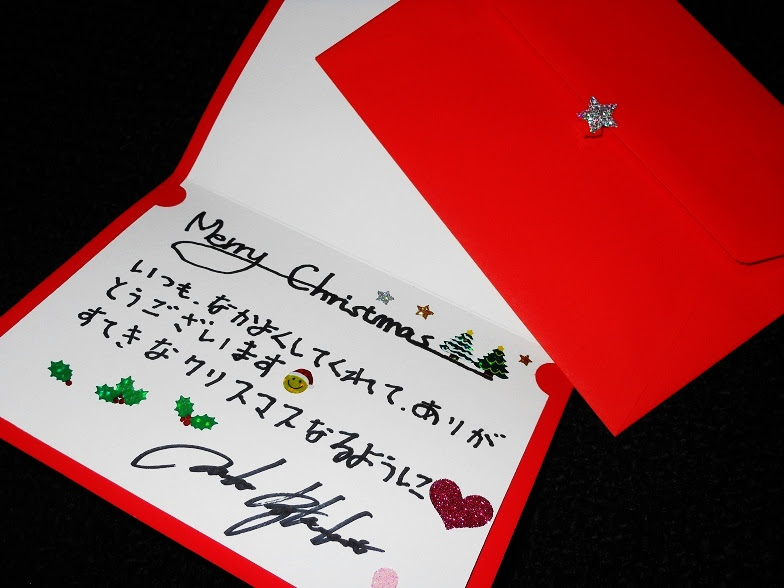 Merry Christmas
いつも、なかよくしてくれて、ありが
とうございます
すてきなクリスマスなるように